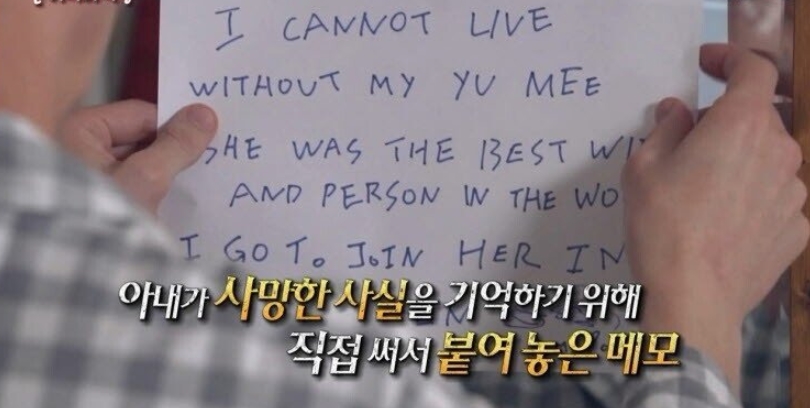 I CANNOT LIVE
WITHOUT MY YU MEE
SHE WAS THE BEST
AND PERSON IN THE
I GO TO JOIN HER IN
아내가 사망한 사실을 기억하기 위해
직접 써서 붙여 놓은 메모